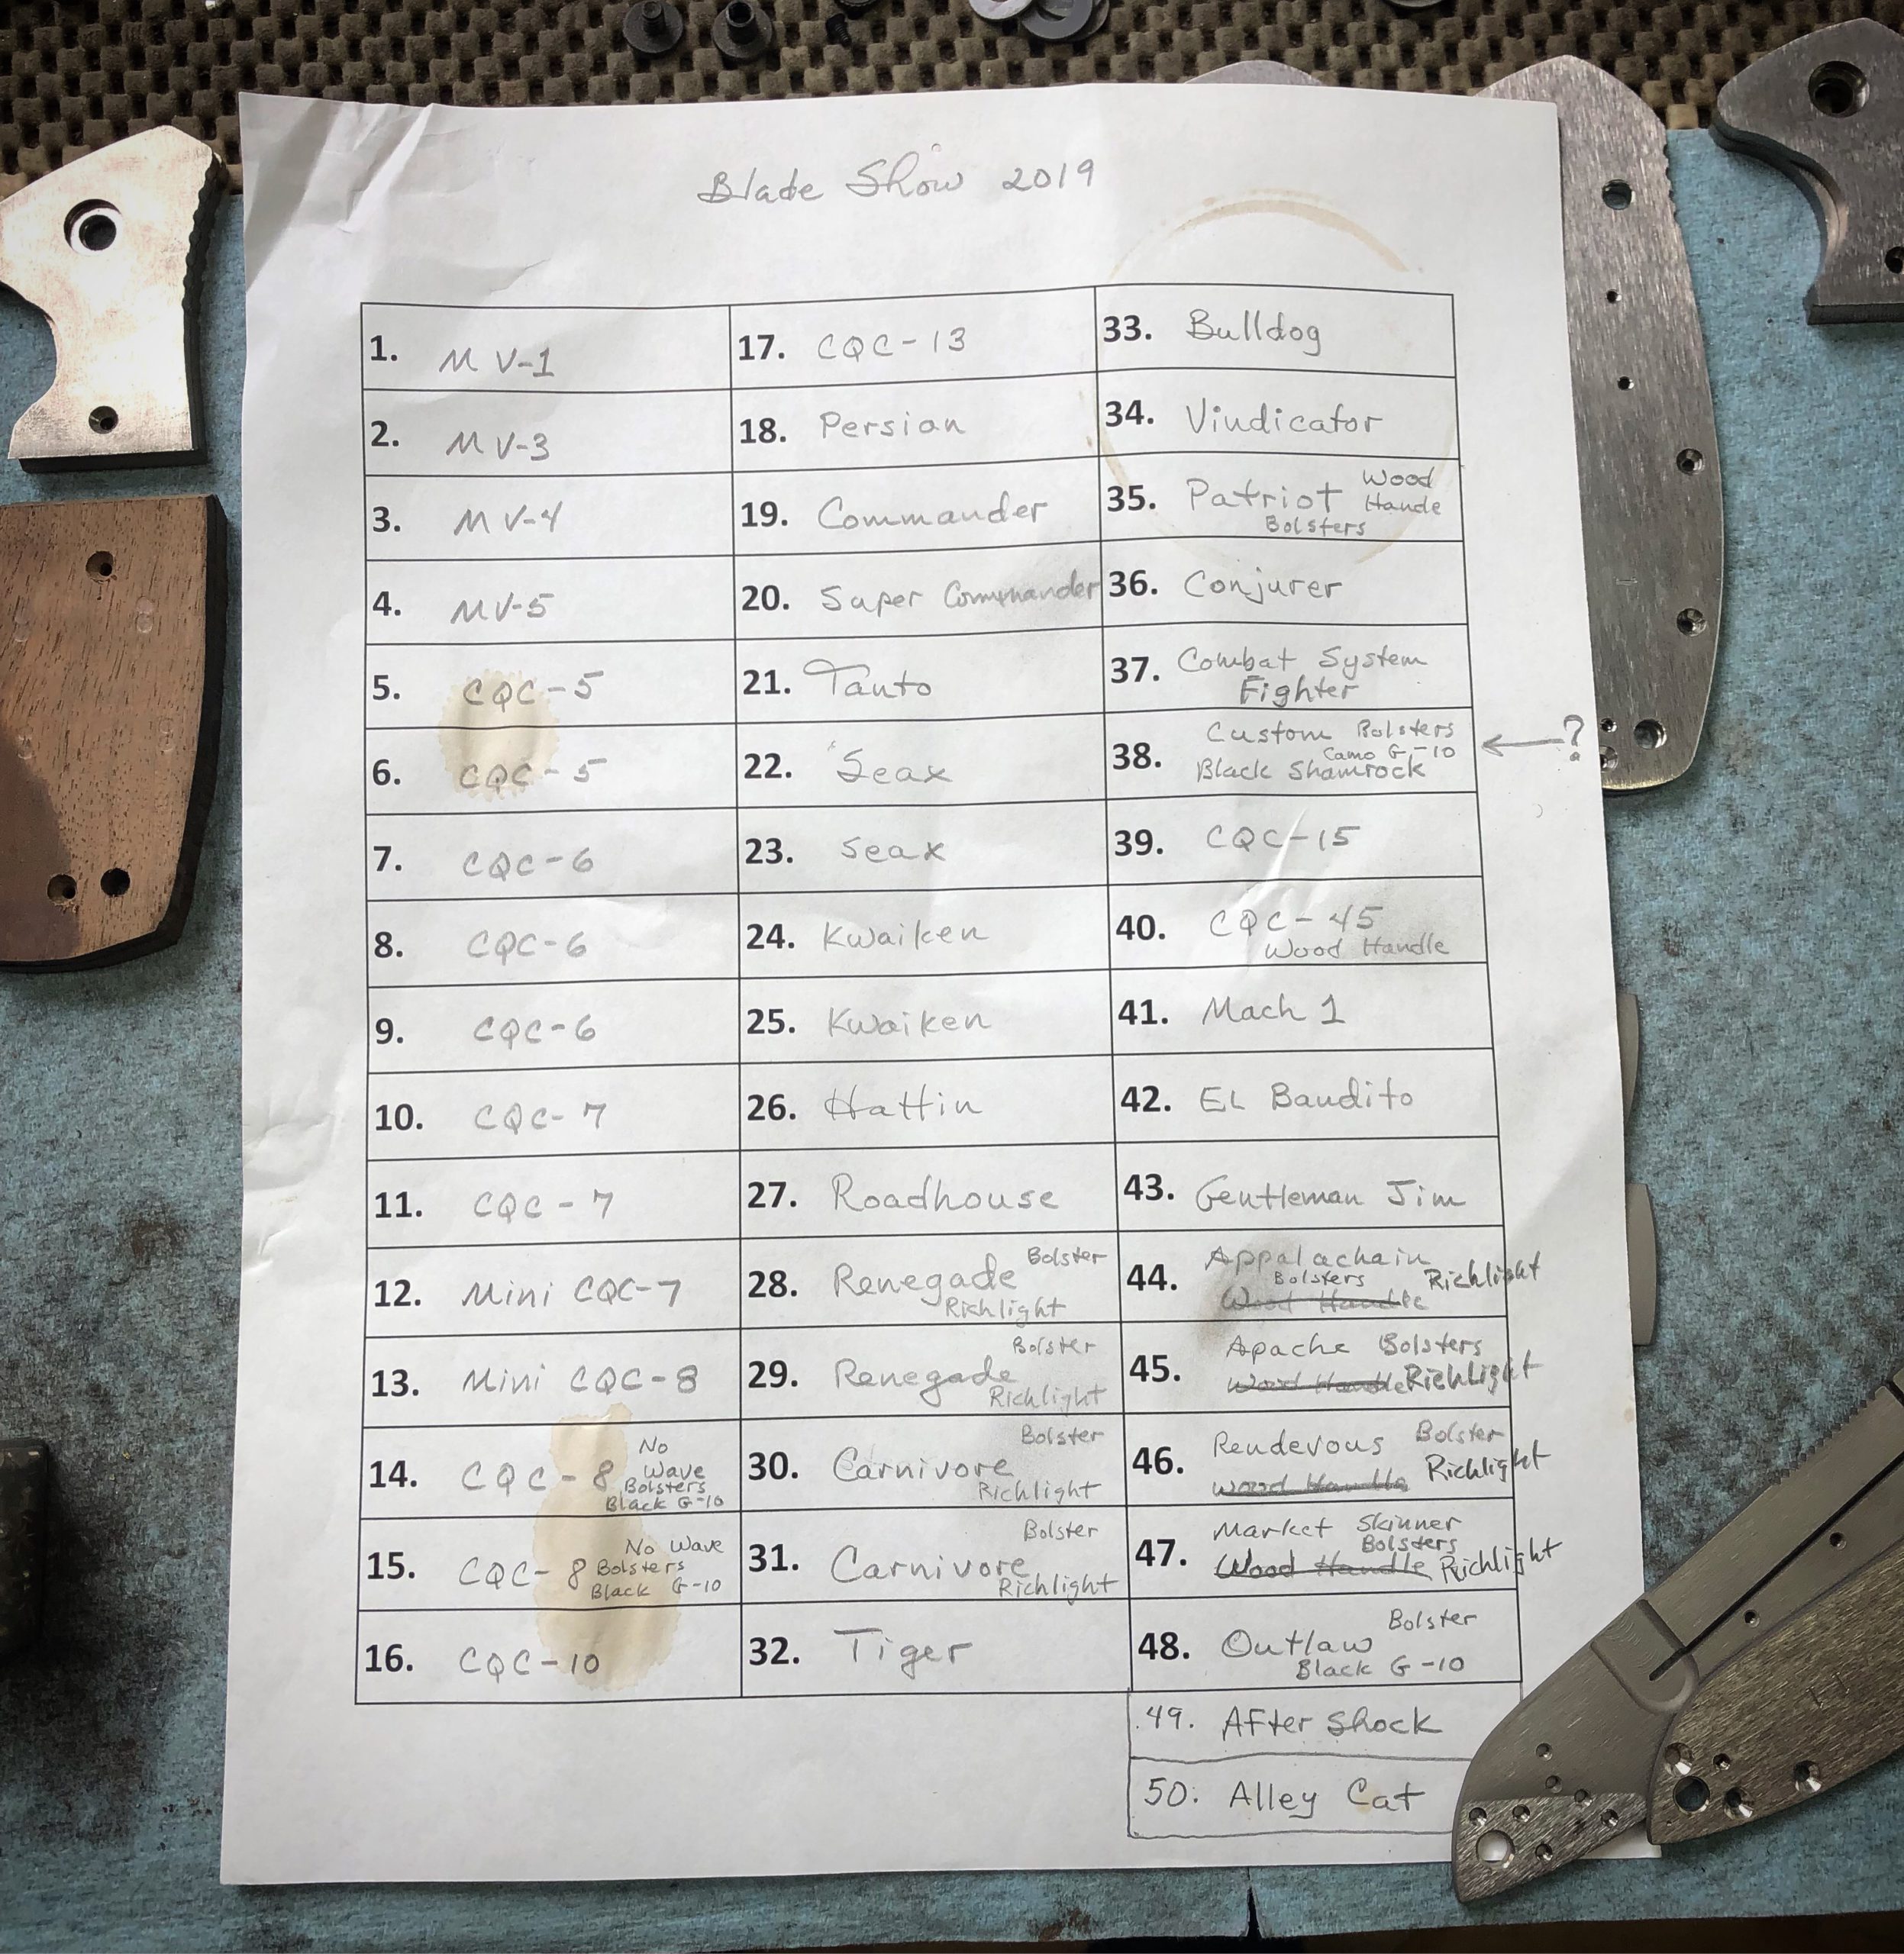 Blade Show 2019
1. MV-1
2. MV-3
3. MV-4
4. MV-5
5. CQC-5
6. CQC-5
7. CQC-6
8. CQC-6
9. CQC-6
10. CQC-7
11. CQC-7
12. Mini CQC-7
13. Mini CQC-8
14. CQC-8 No
Wave
Bolsters
Black G-10
15. CQC-8 No Wave
Bolsters
Black G-10
16. CQC-10
17. CQC-13
18. Persian
19. Commander
20. Super Commander
21. Tanto
22. Seax
23. Seax
24. Kwaiken
25. Kwaiken
26. Hattin
27. Roadhouse
28. Renegade Bolster
Richlight
29. Renegade Bolster
Richlight
30. Carnivore Bolster
Richlight
31. Carnivore Bolster
Richlight
32. Tiger
33. Bulldog
34. Vindicator
35. Patriot Wood
Hande
Bolsters
36. Conjurer
37. Combat System
Fighter
38. Custom Bolsters
Camo G-10
Black Shamrock
?
39. CQC-15
40. CQC-45
Wood Handle
41. Mach 1
42. EL Bandito
43. Gentleman Jim
44. Appalachain
Bolsters Richlight
Wood Handle
45. Apache Bolsters
Wood Handle Richlight
46. Rendevous Bolster
Wood Handle Richlight
47. Market Skinner
Bolsters
Wood Handle Richlight
48. Outlaw Bolster
Black G-10
49. AFter Shock
50. Alley Cat